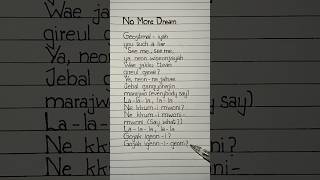 No More Dream
Geojitmal-iyah
you such a liar
See me, see me,
ya neon wiseonjaiyah
Wae jakku ttan
gireul garae?
Ya, neon-na jalhae
Jebal gangyohajin
marajwo (everybody say)
La-la-la, la-la
Ne kkum-i mwoni?
Ne kkum-i mwoni-
mwoni (Say what?)
La-la-la, la-la
Gojak igeon-i?
Gojak igeon-i-geon?